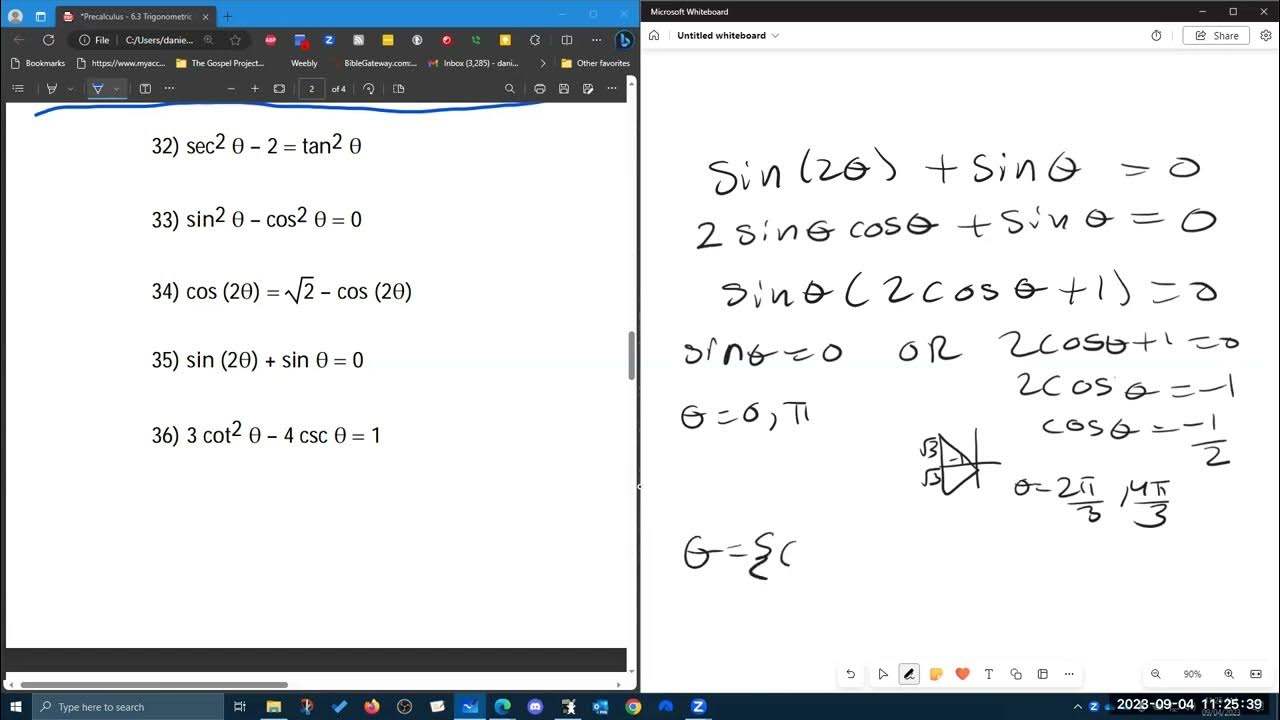 *Precalculus - 6.3 Trigonometric
File
C:/Users/danie...
Bookmarks
https://www.myacc...
The Gospel Project...
Weebly
BibleGateway.com:...
Inbox (3,285) - dani...
Other favorites
2 of 4
32) sec² θ – 2 = tan² θ
33) sin² θ – cos² θ = 0
34) cos (2θ) = √2 – cos (2θ)
35) sin (2θ) + sin θ = 0
36) 3 cot² θ – 4 csc θ = 1
Microsoft Whiteboard
Untitled whiteboard
Share
sin(2θ) + sin θ = 0
2 sinθ cosθ + sin θ = 0
sinθ(2cosθ+1) = 0
sinθ = 0 OR 2cosθ+1=0
2cosθ = -1
θ = 0, π
cosθ = -1/2
√3
-1
√3
θ = 2π/3, 4π/3
θ = {(
90%
Type here to search
2023-09-04 11:25:39